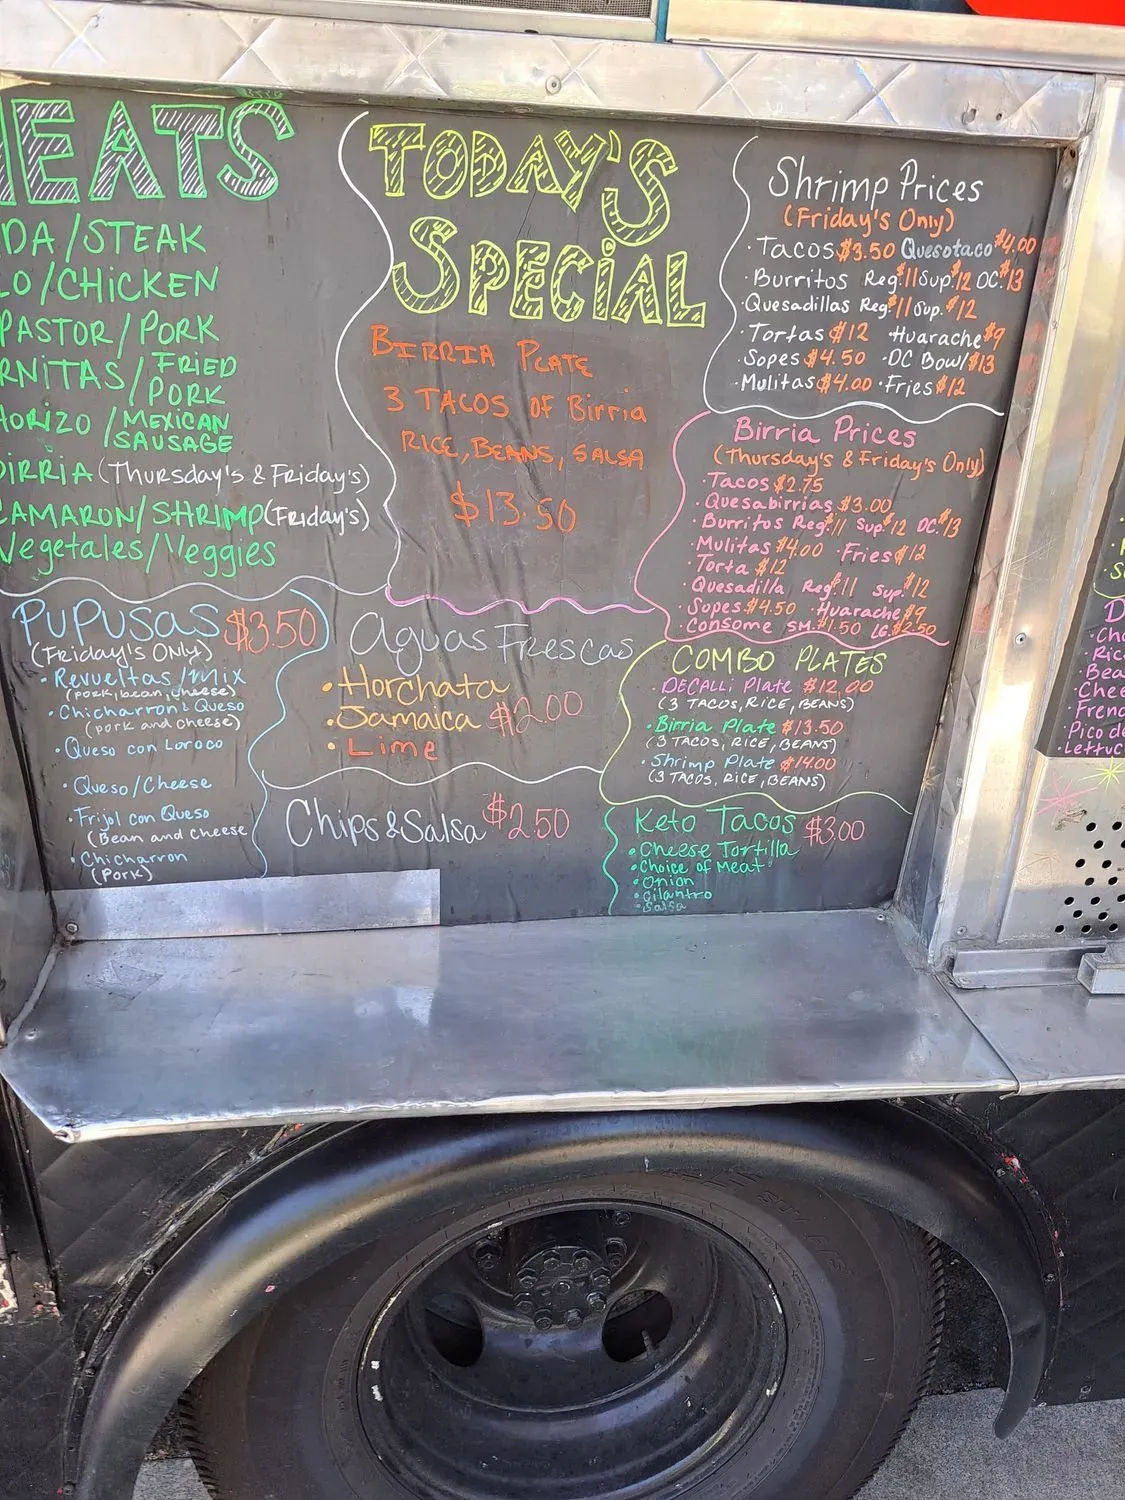 EATS
DA/STEAK
LO/CHICKEN
PASTOR/PORK
RNITAS/FRIED
PORK
HORIZO/MEXICAN
SAUSAGE
BIRRIA (THURSDAY'S & FRIDAY'S)
CAMARON/SHRIMP (FRIDAY'S)
Vegetales/Veggies
TODAY'S
SPECIAL
BIRRIA PLATE
3 TACOS OF Birria
RICE, BEANS, SALSA
$13.50
Shrimp Prices
(Friday's Only)
· Tacos $3.50 Quesotaco $4.00
· Burritos Reg. $11 Sup. $12 DC. $13
· Quesadillas Reg. $11 Sup. $12
· Tortas $12 · Huarache $9
· Sopes $4.50 · DC Bowl $13
· Mulitas $4.00 · Fries $12
Birria Prices
(Thursday's & Friday's Only)
· Tacos $2.75
· Quesabirrias $3.00
· Burritos Reg. $11 Sup. $12 DC. $13
· Mulitas $4.00 · Fries $12
· Torta $12
· Quesadilla Reg. $11 Sup. $12
· Sopes $4.50 · Huarache $9
· Consome SM. $1.50 LG. $2.50
PUPUSAS $3.50
(FRIDAY'S ONLY)
· Revueltas/Mix
(pork, bean, cheese)
· Chicharron & Queso
(pork and cheese)
· Queso con Loroco
· Queso/Cheese
· Frijol con Queso
(Bean and cheese
· Chicharron
(Pork)
Aguas Frescas
· Horchata
· Jamaica $2.00
· Lime
Chips & Salsa $2.50
COMBO PLATES
· DECALLI Plate $12.00
(3 TACOS, RICE, BEANS)
· Birria Plate $13.50
(3 TACOS, RICE, BEANS)
· Shrimp Plate $14.00
(3 TACOS, RICE, BEANS)
Keto Tacos $3.00
· Cheese Tortilla
· Choice of Meat
· Onion
· Cilantro
· Salsa
D
· Cho
· Ric
· Bea
· Chee
· Frenc
· Pico de
· Lettuc